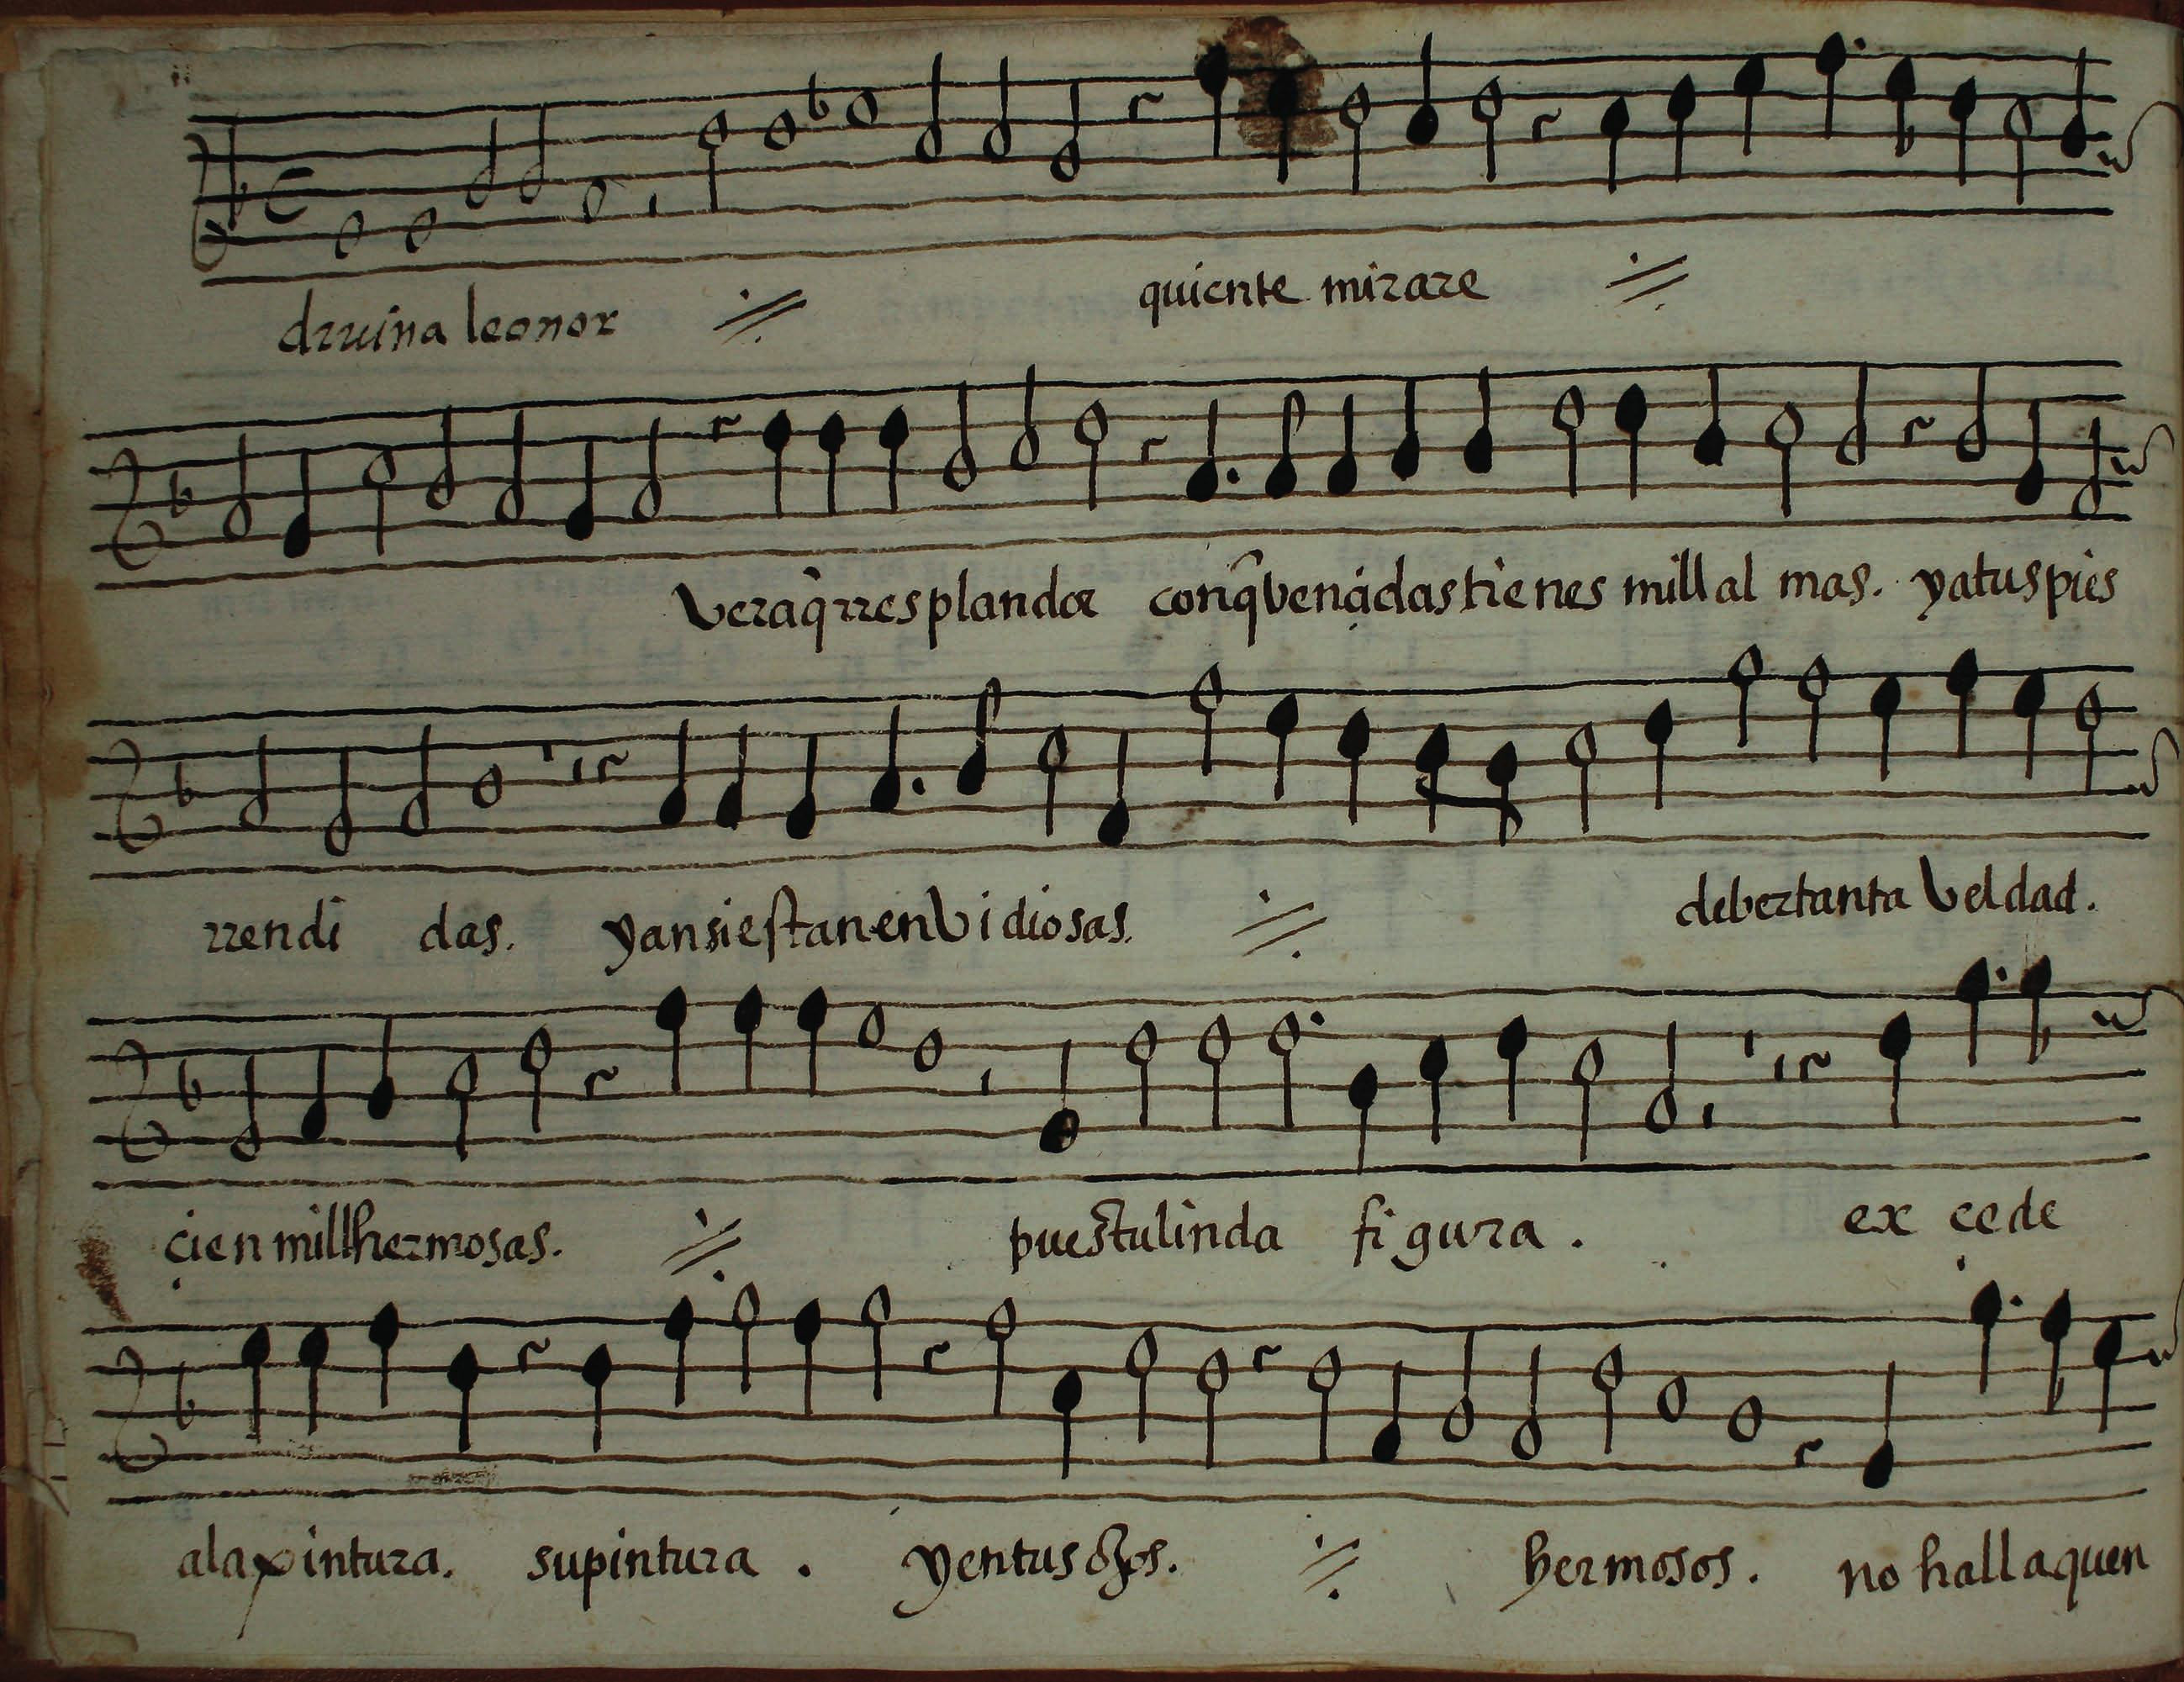 diuina leonor quiente mirare
veraq̃ rresplandor conq̃ vencidas tienes mill al mas. yatuspies
rrendi das. yansiestanenvidiosas. debertanta veldad.
cien millhermosas. puestulinda figura. ex cede
alapintura. supintura. yentus ojos. hermosos. no hallaquen